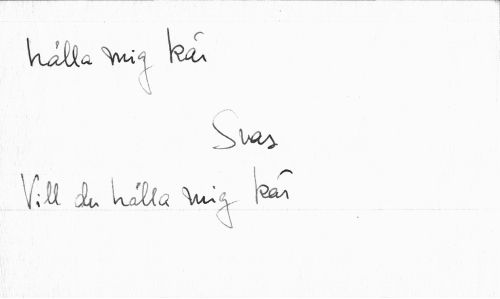 hålla mig kär
Svar
Vill du hålla mig kär